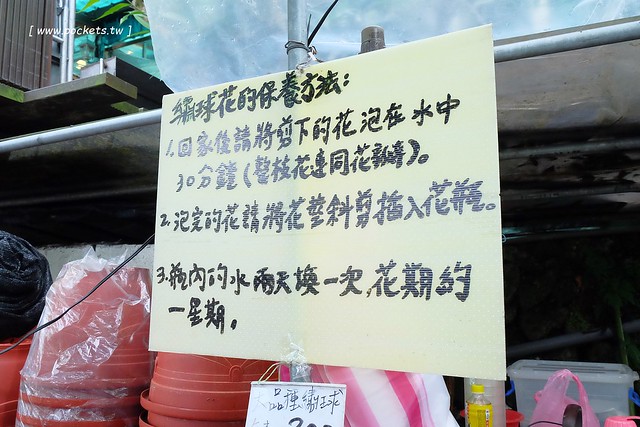 [ www.pockets.tw ]
繡球花的保養方法:
1.回家後請將剪下的花泡在水中
30分鐘(整枝花連同花瓣)。
2.泡完的花請將花莖斜剪插入花瓶。
3.瓶內的水兩天換一次,花期約
一星期。
品種繡球